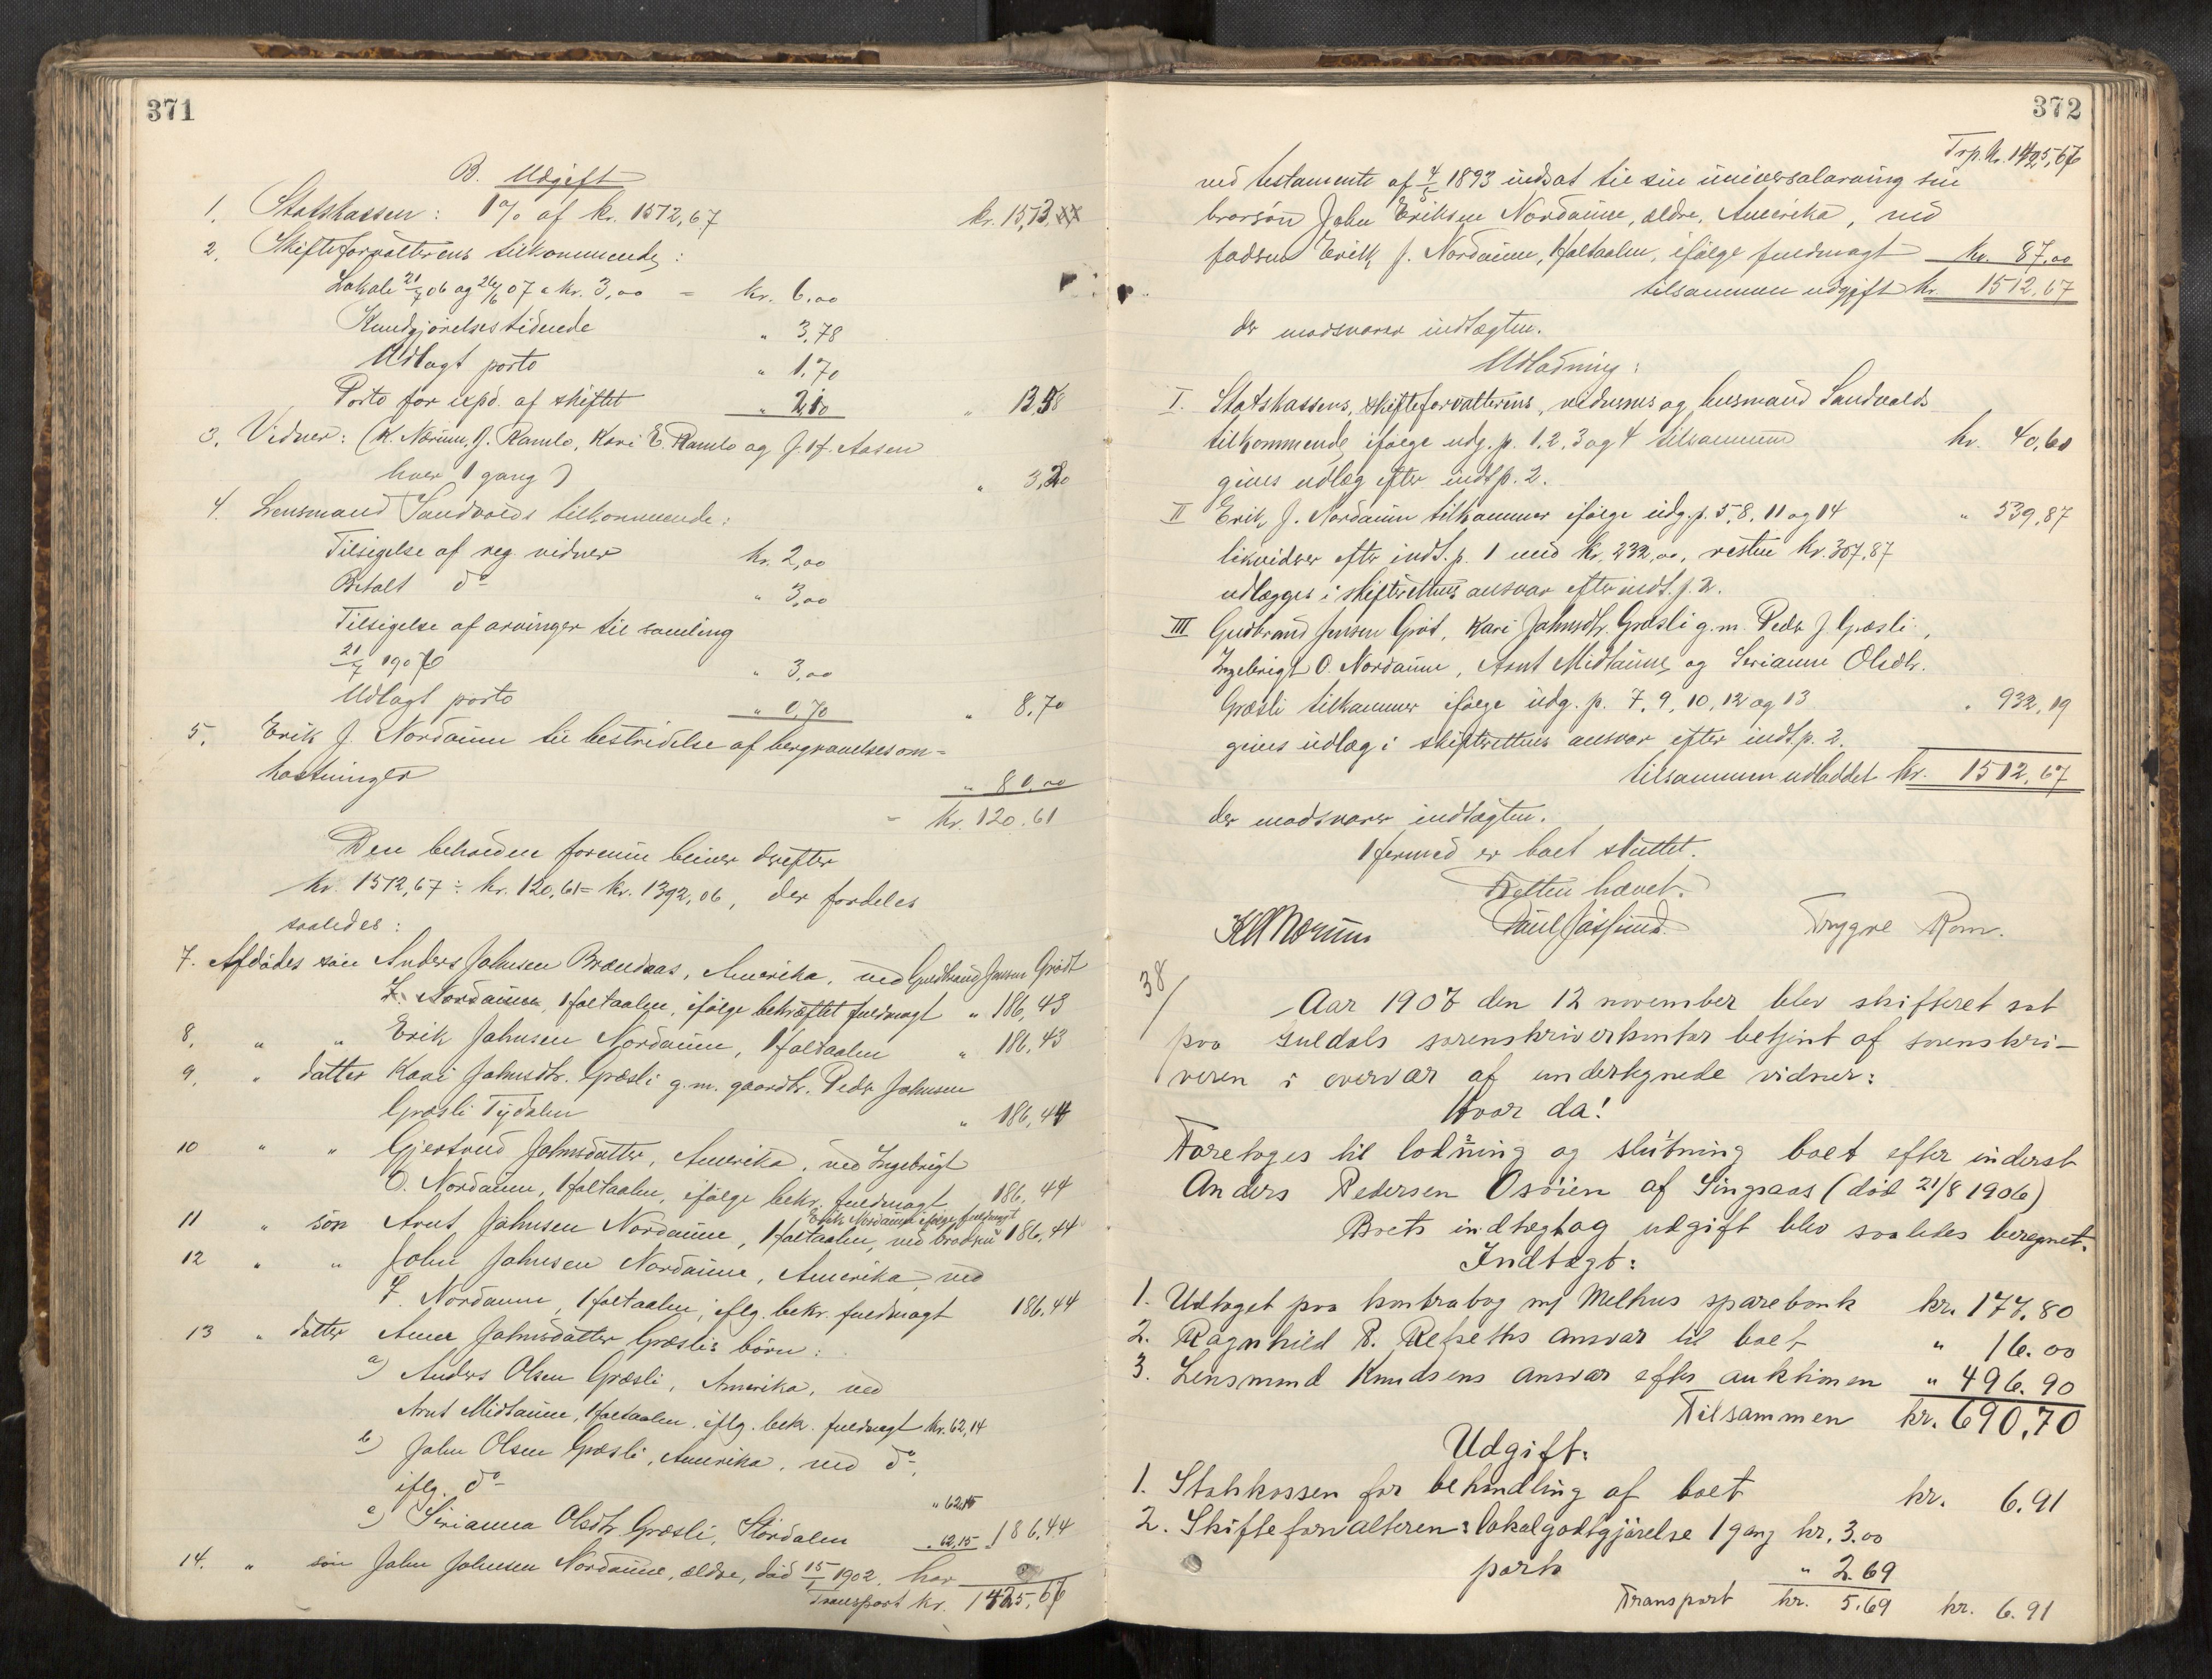 371
B. Udgift
1. Statskassen: 1% af kr. 1512,67 kr. 15,13
2. Skifteforvalterens tilkommende:
Lokale 21/7 06 og 26/6 07 a kr. 3,00 = kr. 6.00
Kundgjørelsestidende " 3,78
Udlagt porto " 1,70
Porto for exp. af skiftet " 2,10 " 13,58
3. Vidner: (K. Nærum, J. Ramlo, Kari E. Ramlo og J. H. Aasen
hver 1 gang) " 3,20
4. Lensmand Sandvolds tilkommende:
Tilsigelse af reg. vidner kr. 2,00
Betalt do " 3,00
Tilsigelse af arvinger til samling
21/7 1906 " 3,00
Udlagt porto " 0,70 " 8,70
5. Erik J. Nordaune til bestridelse af begravelsesom-
kostninger " 80,00
kr. 120.61
Den beholdne formue bliver derefter
kr. 1512,67 ÷ kr. 120,61 = kr. 1392,06, der fordeles
saaledes:
7. Afdødes søn Anders Johnsen Brændaas, Amerika, ved Gudbrand Jensen Grødt
Nordaune, Holtaalen, ifølge bekræftet fuldmagt " 186,43
8. " " Erik Johnsen Nordaune, Holtaalen " 186,43
9. " datter Kari Johnsdtr. Græsli g.m. gaardbr. Peder Johnsen
Græsli Tydalen " 186,44
10 " " Gjertrud Johnsdatter, Amerika, ved Ingebrigt
O. Nordaune, Holtaalen, ifølge bekr. fuldmagt 186,44
Erik Nordaune ifølge fuldmagt
11 " søn Arnt Johnsen Nordaune, Holtaalen, ved broderen 186,44
12 " " John Johnsen Nordaune, Amerika, ved
Nordaune, Holtaalen, iflg. bekr. fuldmagt 186.44
13 " datter Johnsdatter Græslis børn:
a) Anders Olsen Græsli, Amerika, ved
Arnt Midtaune, Holtaalen, iflg. bekr. fuldmagt kr. 62,14
b) John Olsen Græsli, Amerika, ved do,
iflg. do " 62,15
c) Serianna Olsdtr. Græsli, Stördalen " 62,15 " 186,44
14. " søn John Johnsen Nordaune, ældre, død 15/1 1902, har
Transport kr. 1425,67
372
Trp. kr. 1425,67
ved testamente af 4/5 1893 indsat til sin universalarving sin
brorsøn John Eriksen Nordaune, ældre, Amerika, ved
faderen Erik J. Nordaune, Holtaalen, ifølge fuldmagt kr. 87,00
tilsammen udgift kr. 1512,67
der modsvarer indtægten.
Udlodning:
I. Statskassens, skifteforvalterens, vidnernes og lensmand Sandvolds
tilkommende ifølge udg. p. 1, 2, 3 og 4 tilsammen kr. 40,61
gives udlæg efter indt. p. 2.
II Erik J. Nordaune tilkommer ifølge udg. p. 5, 8, 11 og 14 " 539,87
likvideres efter indt. p. 1 med kr. 232,00, resten kr. 307,87
udlægges i skifterettens ansvar efter indt. p. 2.
III Gudbrand Jensen Grøt, Kari Johnsdtr. Græsli g.m. Peder J. Græsli,
Ingebrigt O. Nordaune, Arnt Midtaune og Serianne Olsdtr.
Græsli tilkommer ifølge udg. p. 7, 9, 10, 12 og 13 " 932,19
gives udlæg i skifterettens ansvar efter indt. p. 2.
tilsammen udloddet kr. 1512,67
der modsvarer indtægten.
Hermed er boet sluttet.
Retten hævet.
K Nærum Paul Trygve Rom.
38/
Aar 1907 den 12 november blev skifteret sat
paa Guldals sorenskriverkontor betjent af sorenskri-
veren i overvær af undertegnede vidner:
Hvor da!
Foretoges til lodning og slutning boet efter inderst
Anders Pedersen Osøien af Singsaas (død 21/8 1906)
Boets indtægt og udgift blev saaledes beregnet.
Indtægt:
1. Udtaget paa kontrabog m/ Melhus sparebank kr. 177.80
2. Ragnhild P. Refseths ansvar til boet " 16.00
3. Lensmand Knudsens ansvar efter auktionen " 496.90
Tilsammen kr. 690,70
Udgift:
1. Statskassen for behandling af boet kr. 6.91
2. Skifteforvalteren: lokalgodtgjørelse 1 gang kr. 3.00
porto " 2.69
Transport kr. 5.69 kr. 6.91